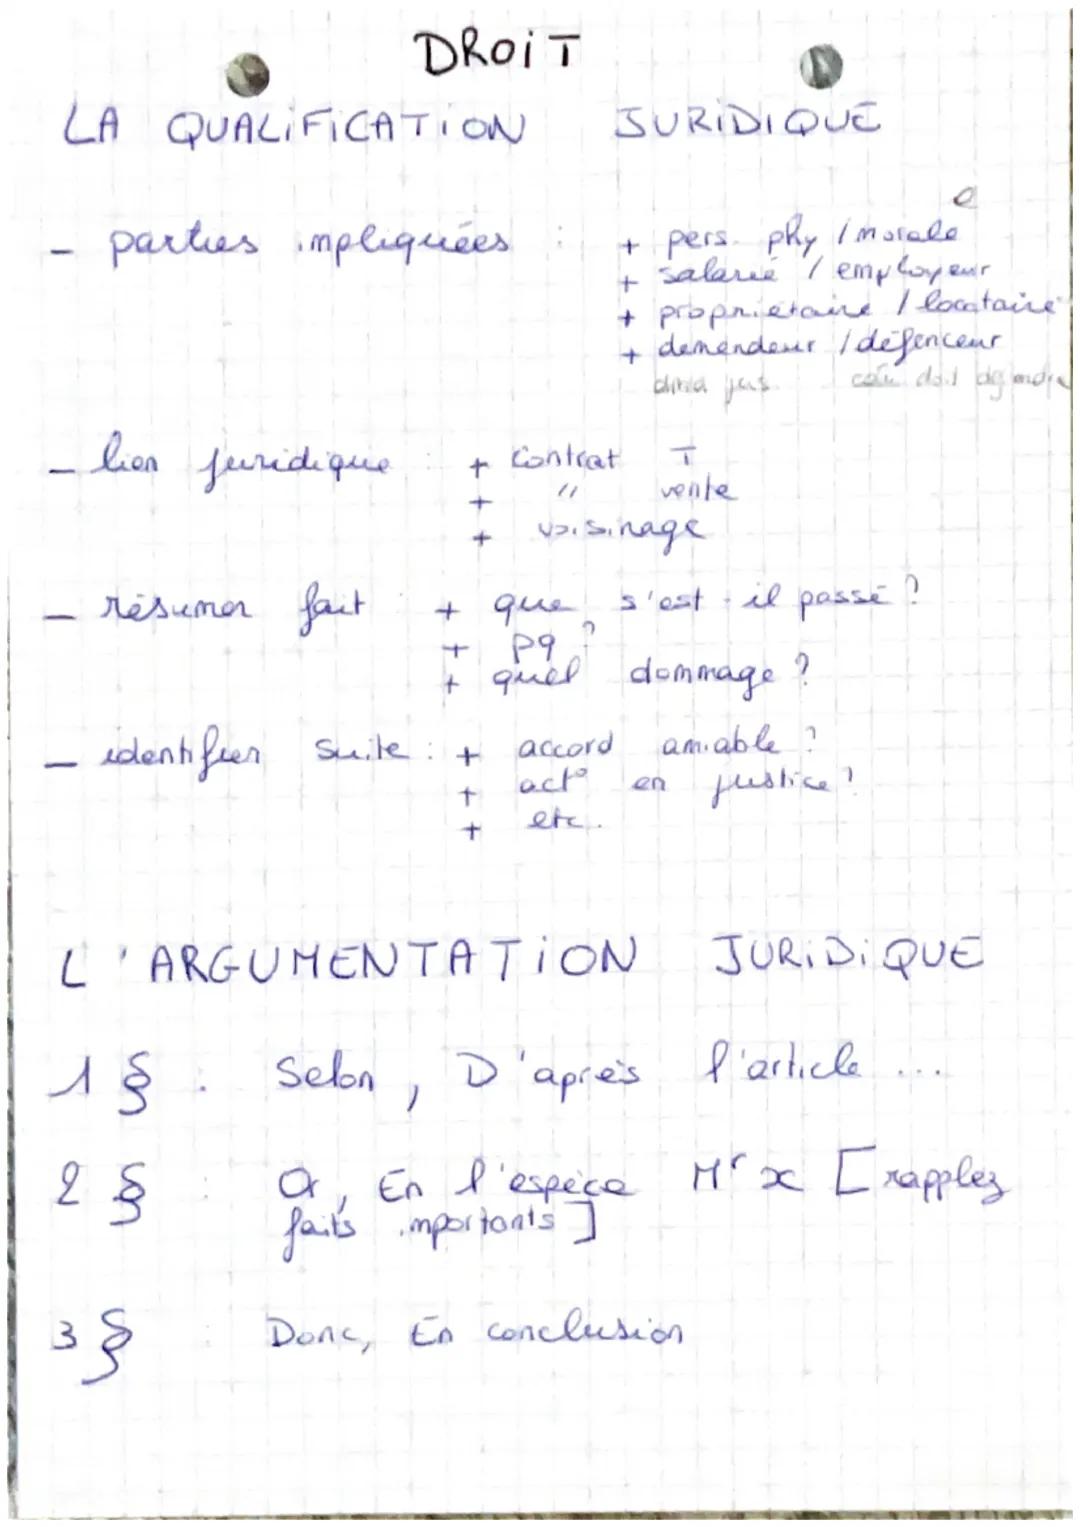 DROiT
LA QUALiFiCATiON JURiDiQUE
- parties impliquées : + pers. phy / morale
+ salarié / employeur
+ propriétaire / locataire
+ demendeur / défenceur
doit
- lien juridique : + contrat T
+ " vente
+ voisinage
- résumer fait : + que s'est-il passé ?
+ pq ?
+ quel dommage ?
- identifier suite : + accord amiable ?
+ act° en justice ?
+ etc.
L'ARGUMENTATiON JURiDiQUE
1 § : Selon, D'après l'article ...
2 § : Or, En l'espèce Mr x [rapplez
faits importants]
3 § : Donc, En conclusion